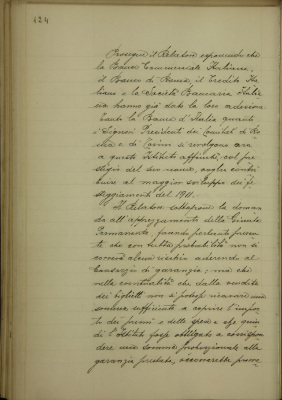 424
Prosegue il Relatore esponendo che
la Banca Commerciale Italiana,
il Banco di Roma, il Credito Ita-
liano e la Società Bancaria Italia-
na hanno già dato la loro adesione.
Tanto la Banca d'Italia quanto
i Signori Presidenti dei Comitati di Ro-
ma e di Torino si rivolgono ora
a questo Istituto affinché, col pre-
stigio del suo nome, voglia contri-
buire al maggior sviluppo dei fe-
steggiamenti del 1911.
Il Relatore sottopone la domanda
da all'apprezzamento della Giunta
Permanente, facendo pertanto presen-
te che con tutta probabilità non si
correrà alcun rischio aderendo al
Consorzio di garanzia; ma che
nella eventualità che dalla vendita
dei biglietti non si potesse ricavare una
somma sufficiente a coprire l'impor-
to dei premi e delle spese, e che quin-
di l'Istituto fosse obbligato a corrispon-
dere una somma proporzionale alla
garanzia prestata, occorrerebbe